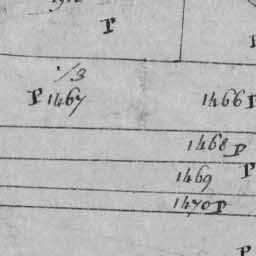 P
P
./3
P 1467
1466 P
1468 P
1469 P
1470 P
P